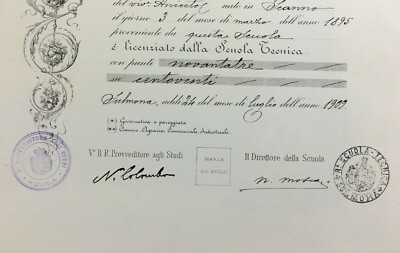 del viv. Aniceto nato in Scanno
il giorno 3 del mese di marzo dell'anno 1895
proveniente da questa Scuola
è licenziato dalla Scuola Tecnica.
con punti novantatre
su centoventi
Sulmona, addì 26 del mese di Luglio dell'anno 1909
(*) Governativa o pareggiata
(**) Comune, Agraria, Commerciale, Industriale
V° Il R. Provveditore agli Studi
MARCA
DA BOLLO
Il Direttore della Scuola
N. Colombo
n. mosca
SCUOLA TECNICA